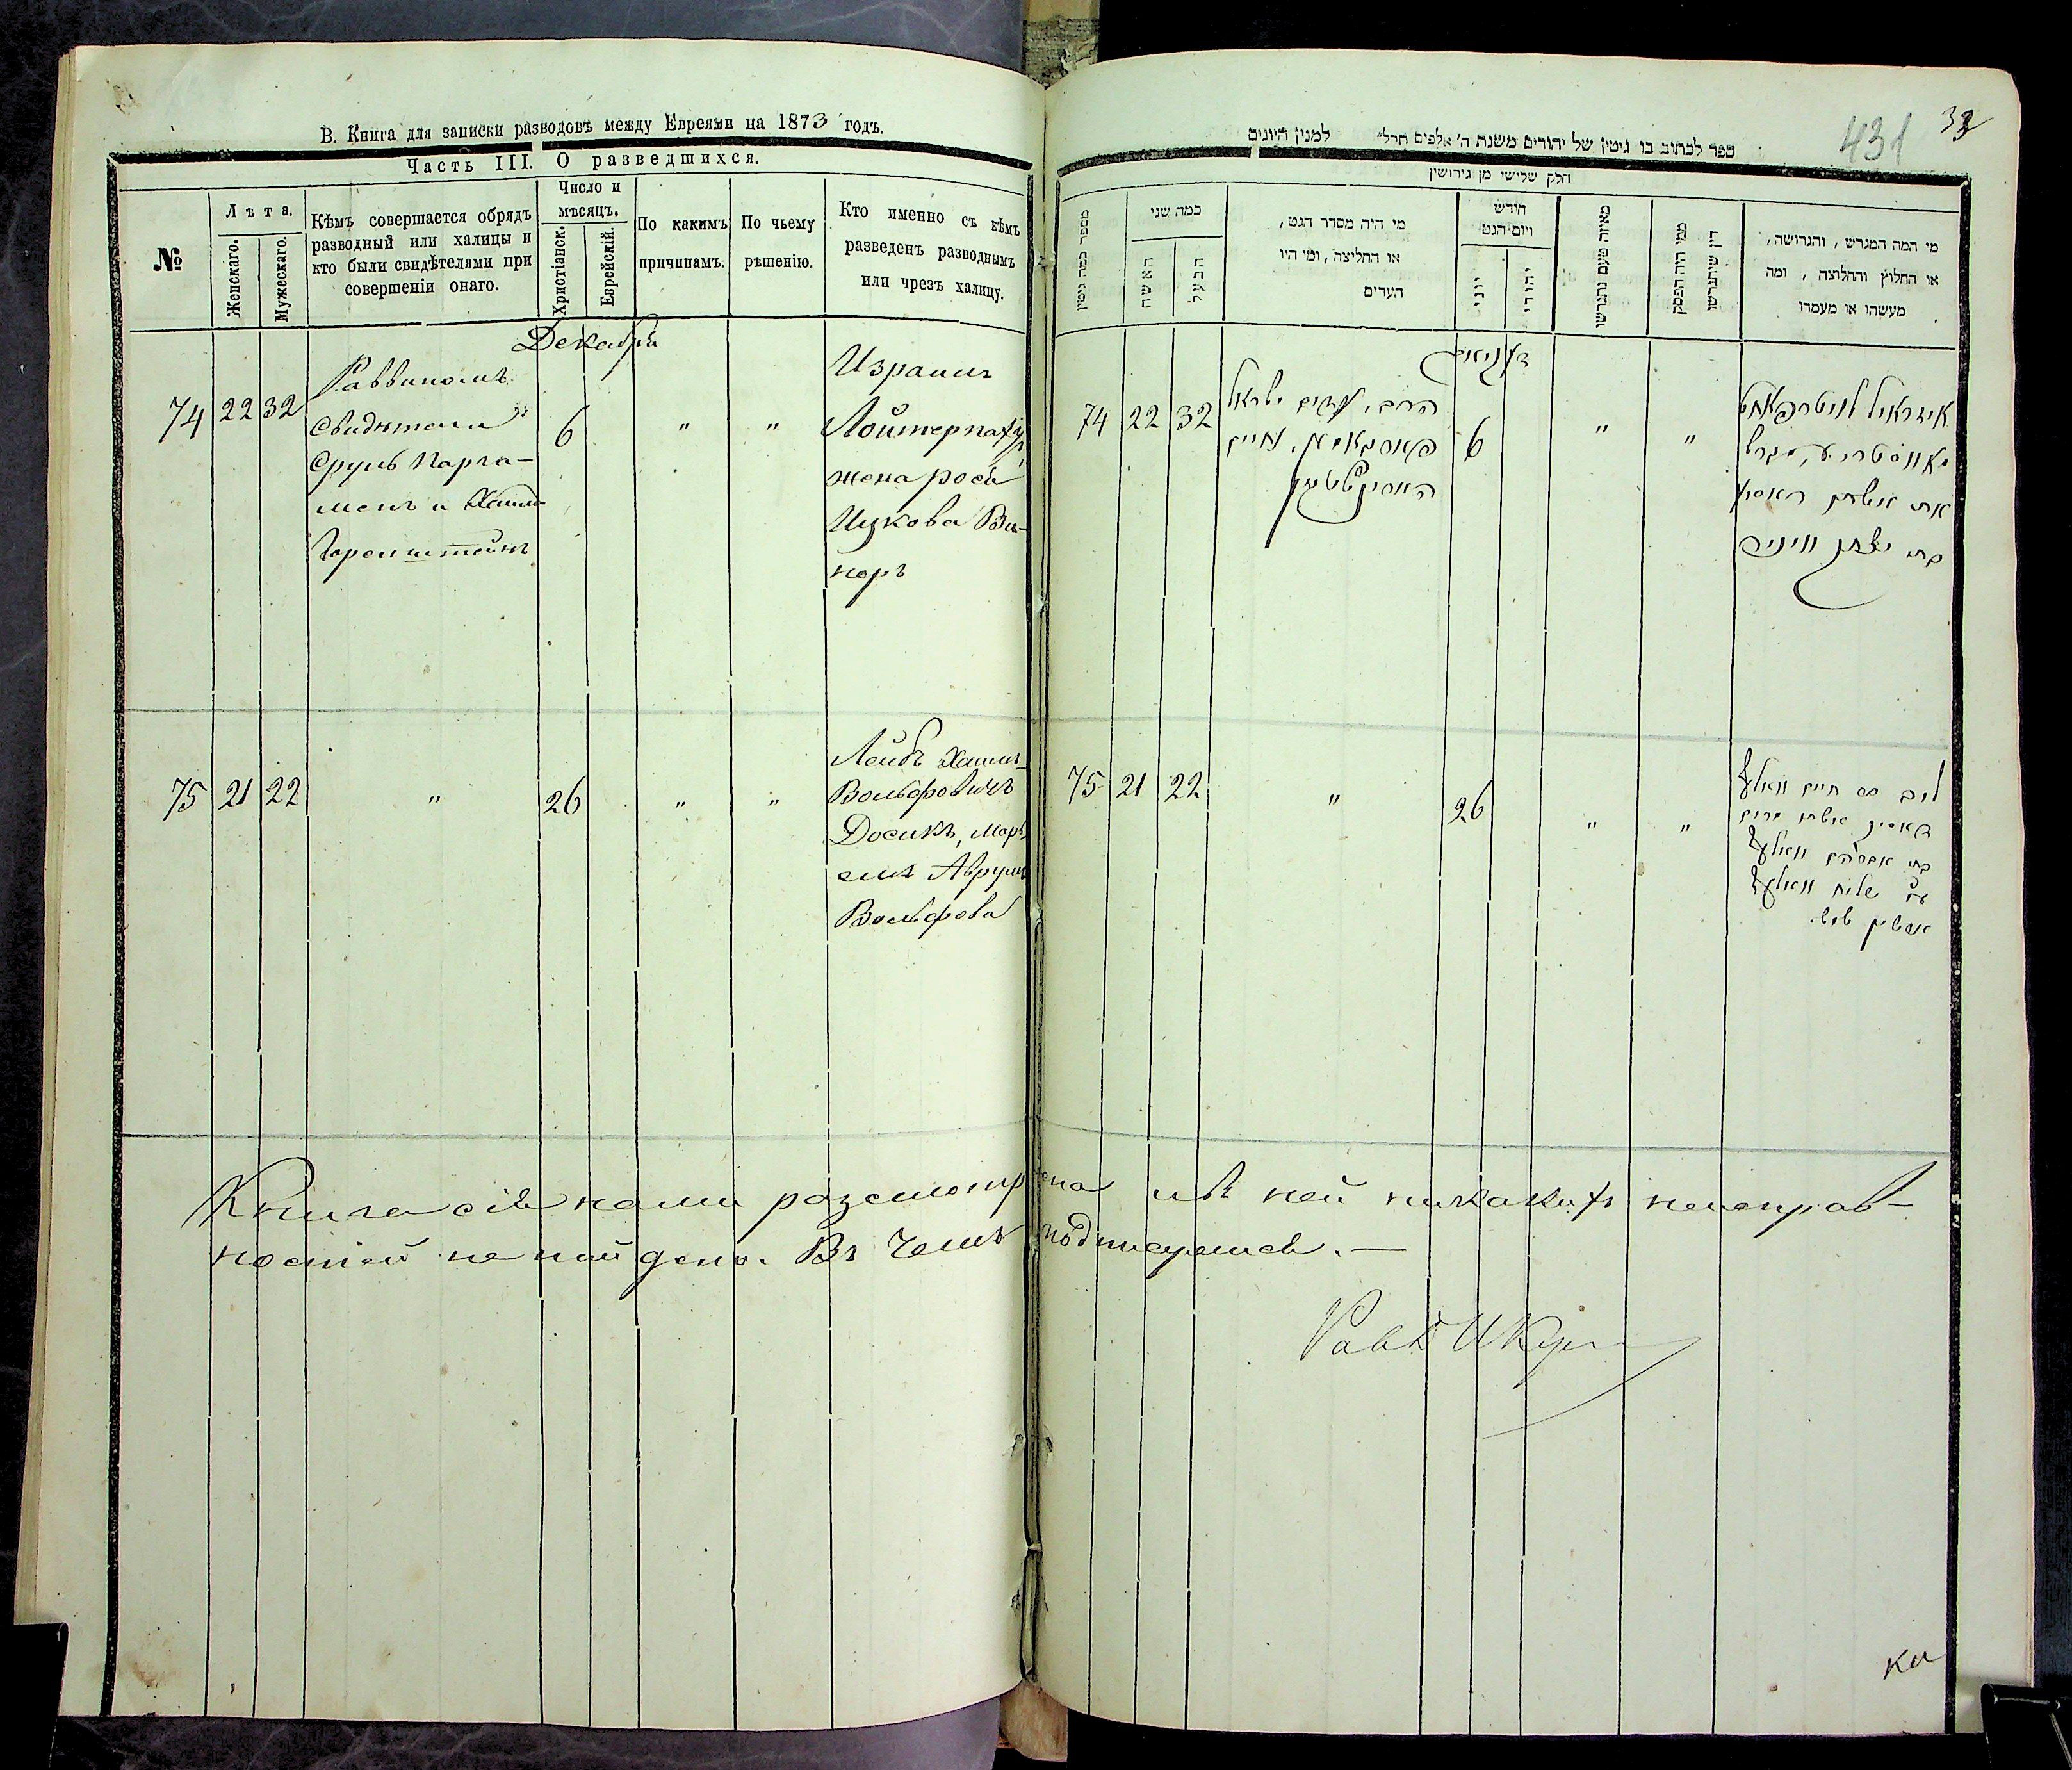 В. Книга для записки разводовъ между Евреями на 1873 годъ.
Часть III. О разведшихся.
№
Лѣта.
Женскаго.
Мужескаго.
Кѣмъ совершается обрядъ
разводный или халицы и
кто были свидѣтелями при
совершеніи онаго.
Число и
мѣсяцъ.
Христіанск.
Еврейскій.
По какимъ
причинамъ.
По чьему
рѣшенію.
Кто именно съ кѣмъ
разведенъ разводнымъ
или чрезъ халицу.
Декабря
74 22 32
Раввиномъ
Свидѣтели
Сруль Парга-
менъ и Хаим
Горенштейнъ
6
"
"
Израиль
Лойтерпахтъ,
жена рося
Ицкова Ви-
норъ
75 21 22
"
26
"
"
Лейбъ Хаимъ-
Вольфовичъ
Досикъ, Марі-
емъ Аврумъ
Вольфова
Книга сія нами разсмотрена и въ ней никакихъ неисправ-
ностей не найдено. Въ чемъ подписуемся. —
431
33
ספר לכתוב בו גיטין של יהודים משנת ה' אלפים תרל" למנין היונים
חלק שלישי מן גירושין
מספר כמה גיטין
כמה שני
האשה
הבעל
מי היה מסדר הגט,
או החליצה, ומי היו
העדים
חודש
ויום הגט
יוני
יהודי
מאיזה טעם נתגרשו
ממי היה הפסק
דין שיתגרשו
מי המה המגרש, והגרושה,
או החלוץ והחלוצה, ומה
מעשהו או מעמדו
74 22 32
6
"
"
75 21 22
"
26
"
"
לייב בן חיים וואלף
בת אברהם וואלף